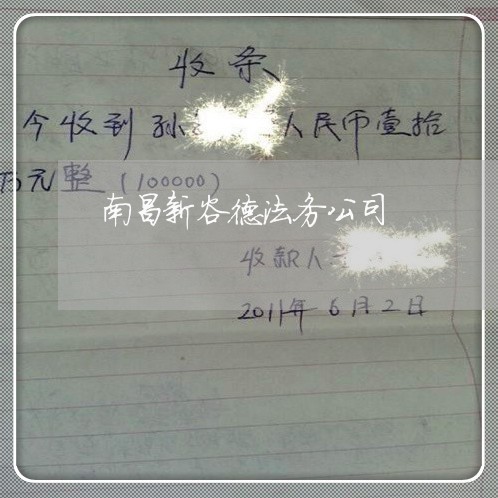 收条
今收到孙 人民币壹拾
万元整（100000）
南昌新容德法务公司
收款人
2011年6月2日